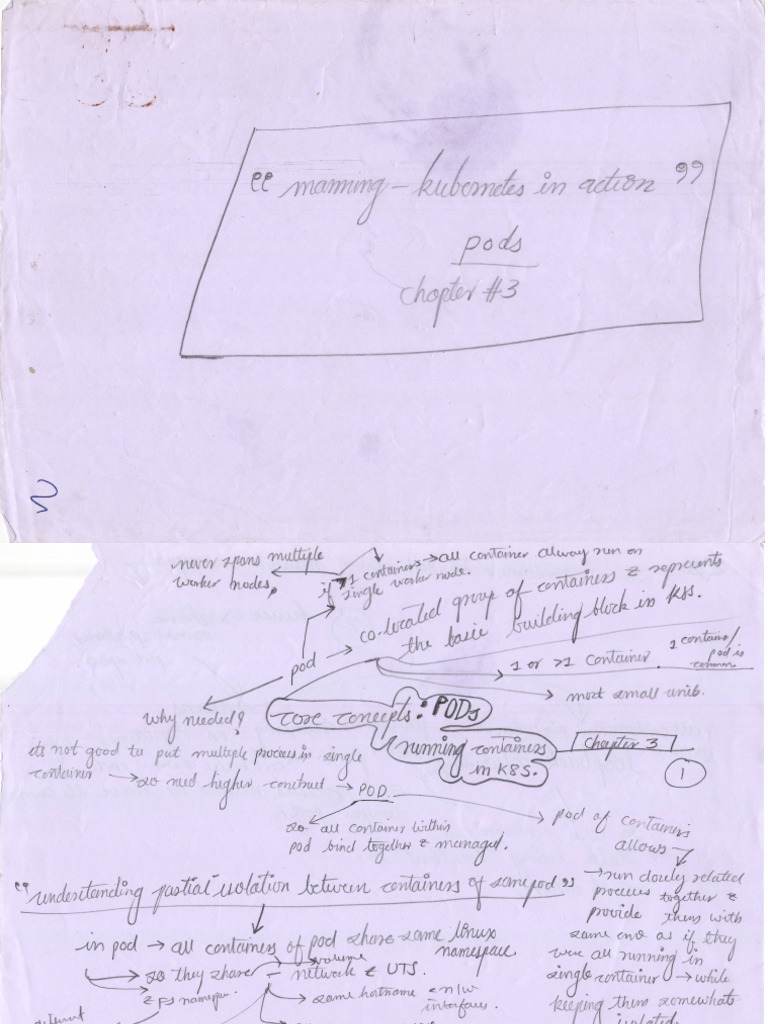 “ manning - kubernetes in action ”
pods
chapter #3
never spans multiple
worker nodes.
if >1 containers → all container alway run on
single worker node.
pod → co-located group of containers & represents
the basic building block in K8S.
→ 1 or >1 container.
1 container/
pod is
common
→ most small unit.
why needed?
core concepts: PODs
running containers
in K8S.
Chapter 3
1
its not good to put multiple process in single
container → so need higher construct → POD.
so all container within
pod bind together & managed.
pod of containers
allows
→ run closely related
processes together &
provide them with
same env as if they
were all running in
single container → while
keeping them somewhat
isolated
“ understanding partial isolation between containers of same pod ”
in pod → all containers of pod share same linux
namespace
→ so they share - network & UTS.
volume
→ same hostname & n/w
interfaces.
different